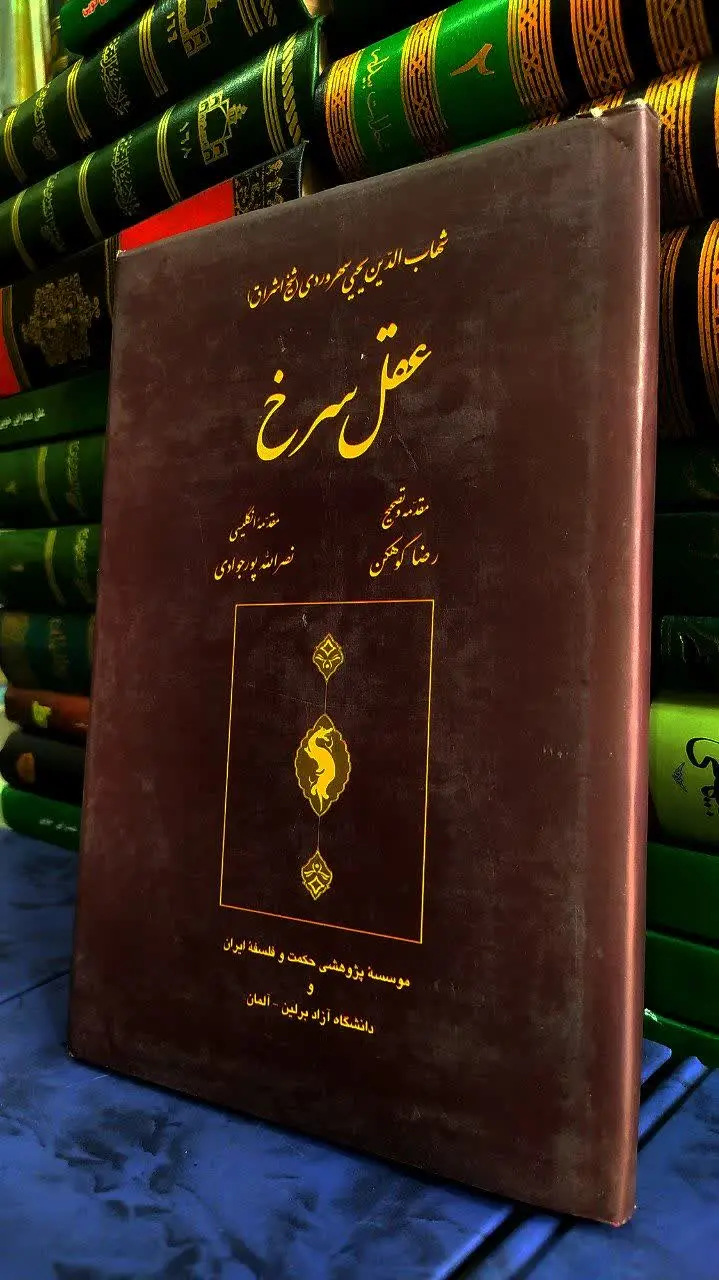 شهاب الدّین یحیی سهروردی (شیخ اشراق)
عقل سرخ
مقدّمه و تصحیح
رضا کوهکن
مقدّمه انگلیسی
نصرالله پورجوادی
موسسهٔ پژوهشی حکمت و فلسفهٔ ایران
و
دانشگاه آزاد برلین - آلمان